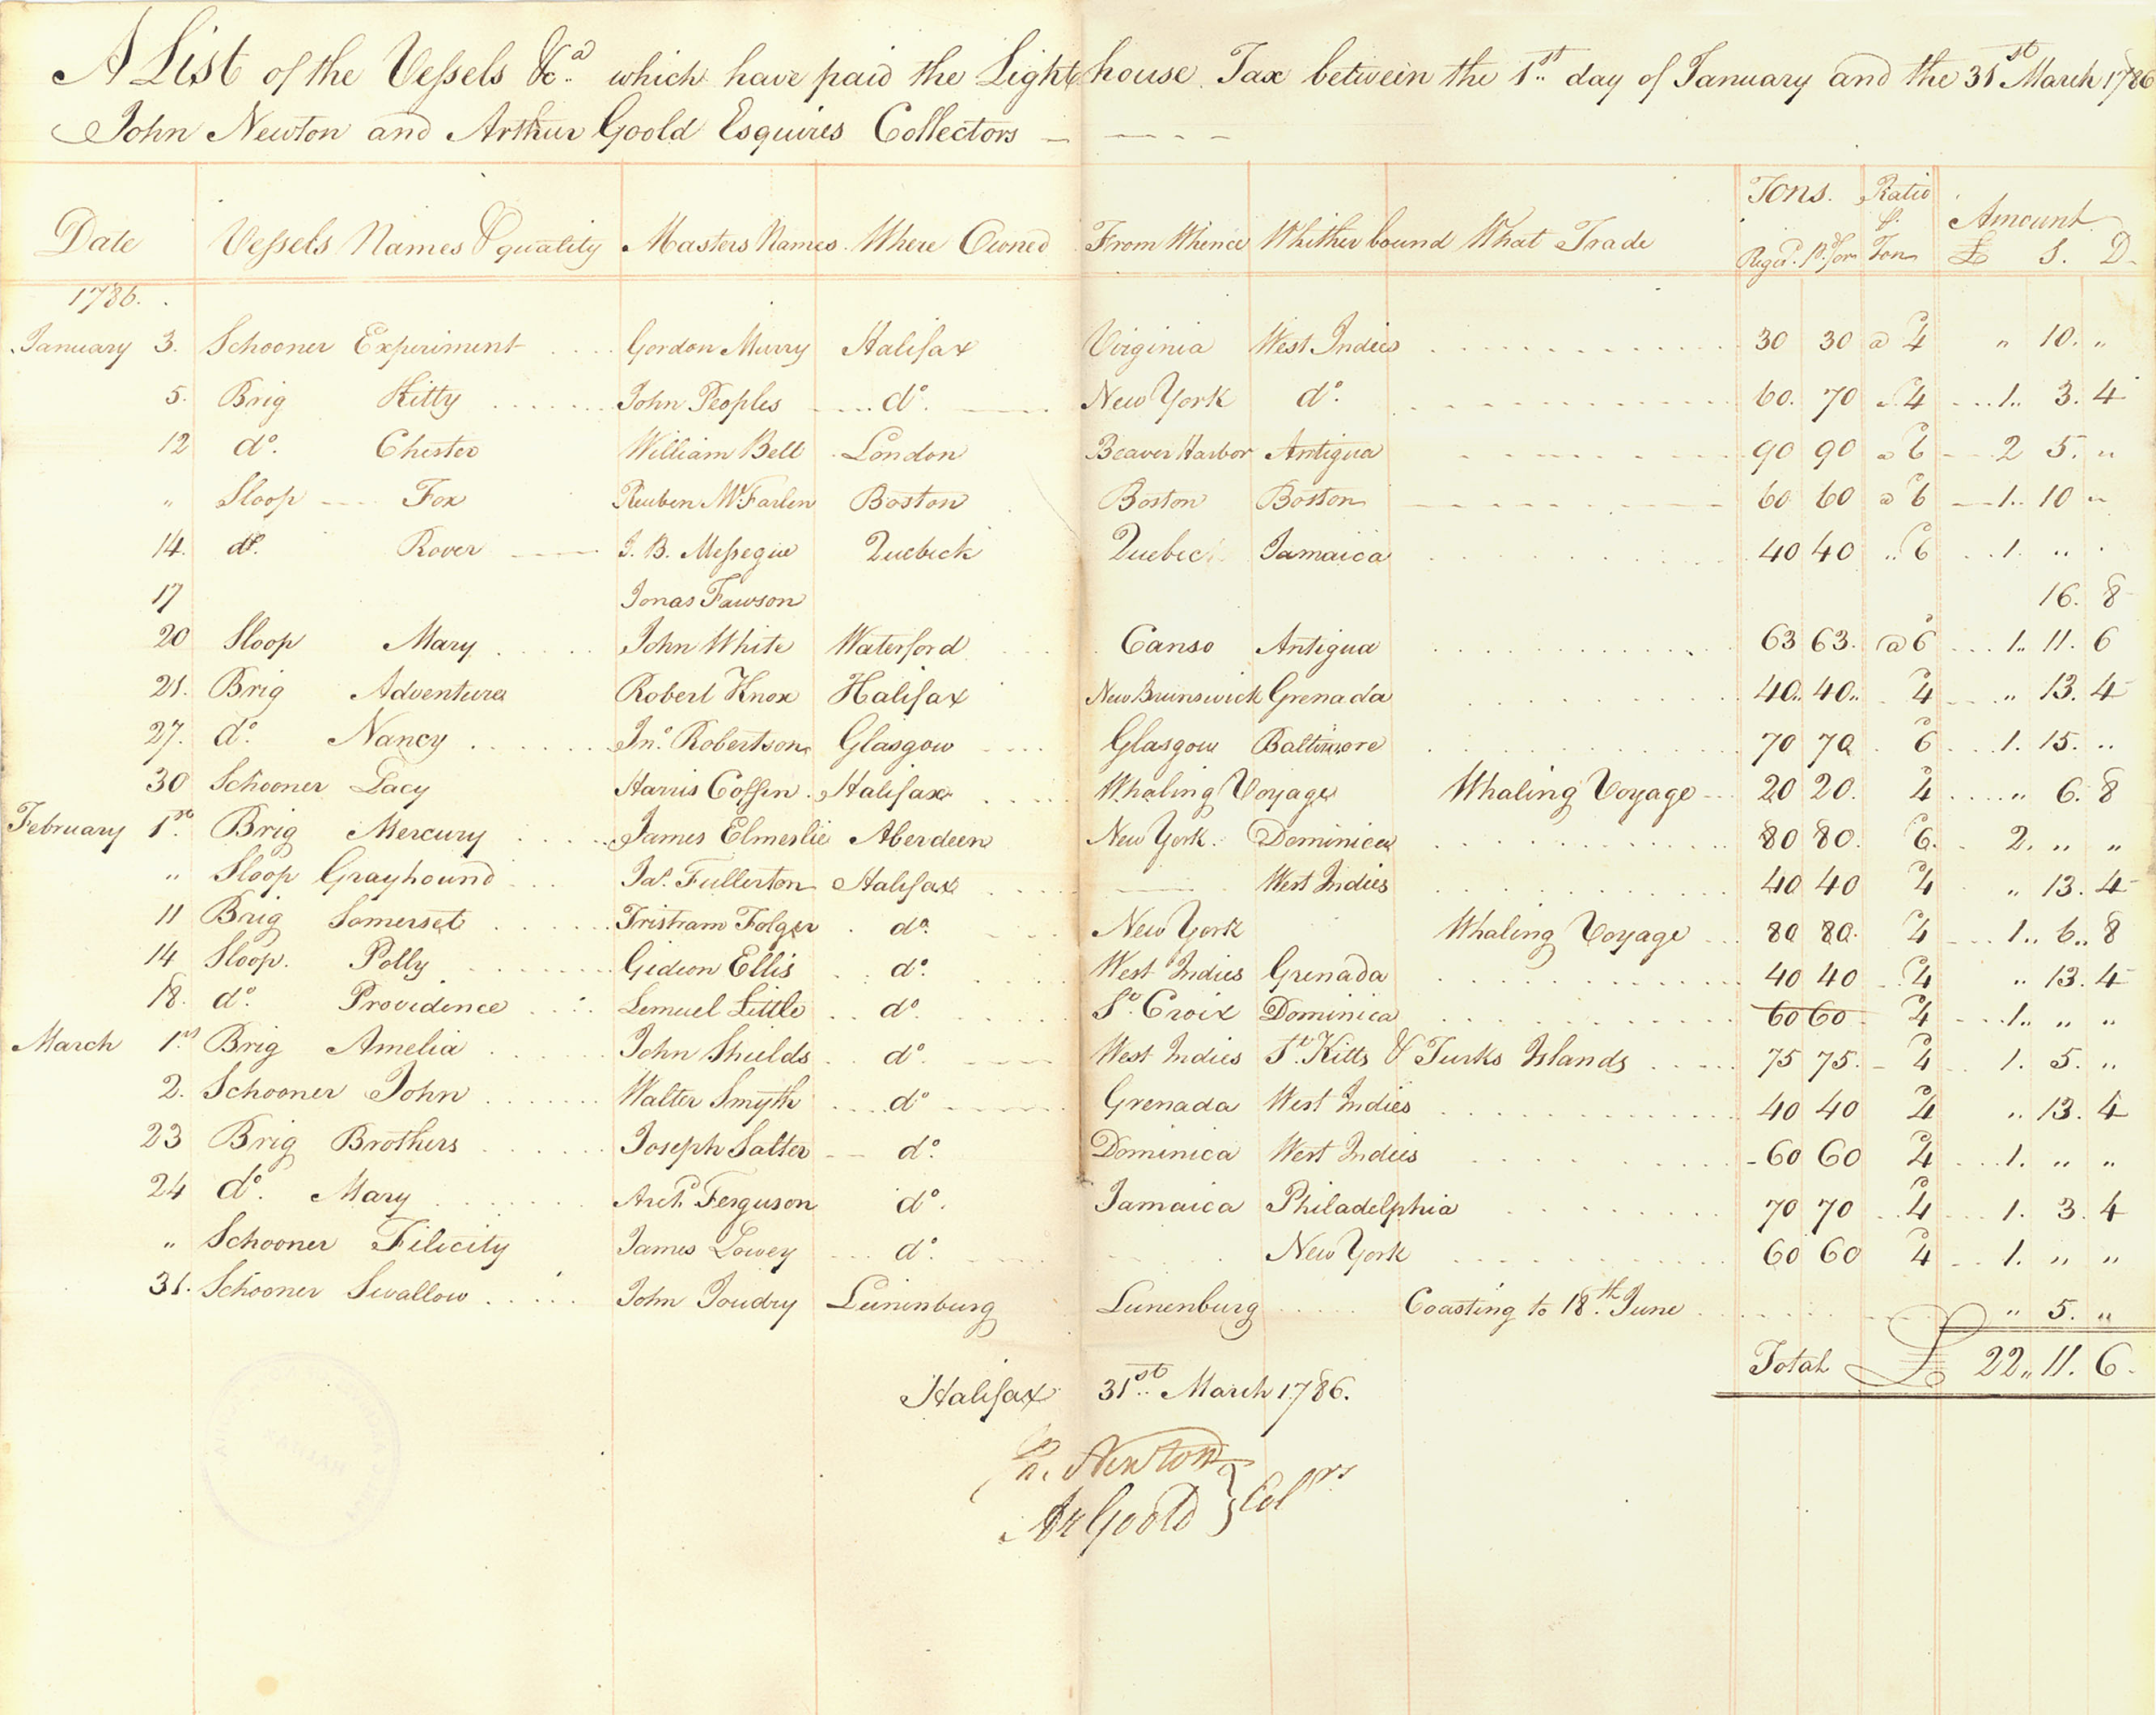 A List of the Vessels &c.a which have paid the Light house Tax between the 1st day of January and the 31st March 1786
John Newton and Arthur Goold Esquires Collectors
Date Vessels Names & quality Masters Names Where Owned From Whence Whither bound What Trade Tons. Regd. Pd. for Ratio P. Ton Amount £ S. D.
1786.
January 3. Schooner Experiment Gordon Murry Halifax Virginia West Indies 30 30 @ 4 " 10. "
5. Brig Kitty John Peoples do. New York do. 60. 70 4 1. 3. 4
12 do. Chester William Bell London Beaver Harbor Antigua 90 90 @ 6 2 5. "
" Sloop Fox Reuben McFarlen Boston Boston Boston 60 60 @ 6 1. 10 "
14. do. Rover J. B. Messegue Quebeck Quebec Jamaica 40 40 6 1. " "
17 Jonas Fawson 16. 8
20 Sloop Mary John White Waterford Canso Antigua 63 63. @ 6 1. 11. 6
21. Brig Adventure Robert Knox Halifax New Brunswick Grenada 40. 40. 4 " 13. 4
27. do. Nancy Jno. Robertson Glasgow Glasgow Baltimore 70 70 6 1. 15. "
30 Schooner Lacy Harris Coffin Halifax Whaling Voyage Whaling Voyage 20 20. 4 " 6. 8
February 1st. Brig Mercury James Elmeslie Aberdeen New York. Dominica 80 80. 6. 2. " "
" Sloop Grayhound Jas. Fullerton Halifax West Indies 40 40 4 " 13. 4
11 Brig Somerset Tristram Folger do. New York Whaling Voyage 80 80. 4 1. 6. 8
14 Sloop. Polly Gideon Ellis do. West Indies Grenada 40 40 4 " 13. 4
18. do. Providence Lemuel Little do. St. Croix Dominica 60 60 4 1. " "
March 1st Brig Amelia John Shields do. West Indies St. Kitts & Turks Islands 75 75. 4 1. 5. "
2. Schooner John Walter Smyth do Grenada West Indies 40 40 4 " 13. 4
23 Brig Brothers Joseph Salter do. Dominica West Indies 60 60 4 1. " "
24 do. Mary Archd. Ferguson do. Jamaica Philadelphia 70 70 4 1. 3. 4
" Schooner Filicity James Lowey do. New York 60 60 4 1. " "
31. Schooner Swallow John Joudry Luninburg Lunenburg Coasting to 18.th June " 5. "
Total £ 22. 11. 6.
Halifax 31st. March 1786.
Jn. Newton
Ar Goold } Colrs